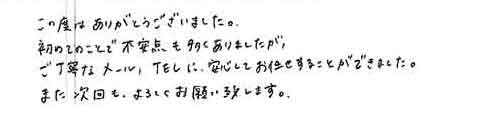 この度はありがとうございました。
初めてのことで不安点も多くありましたが、
ご丁寧なメール、TELに、安心してお任せすることができました。
また次回も、よろしくお願い致します。